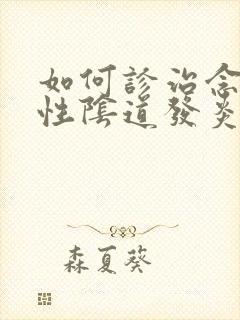 如何診治念
性陰道發炎
森夏葵